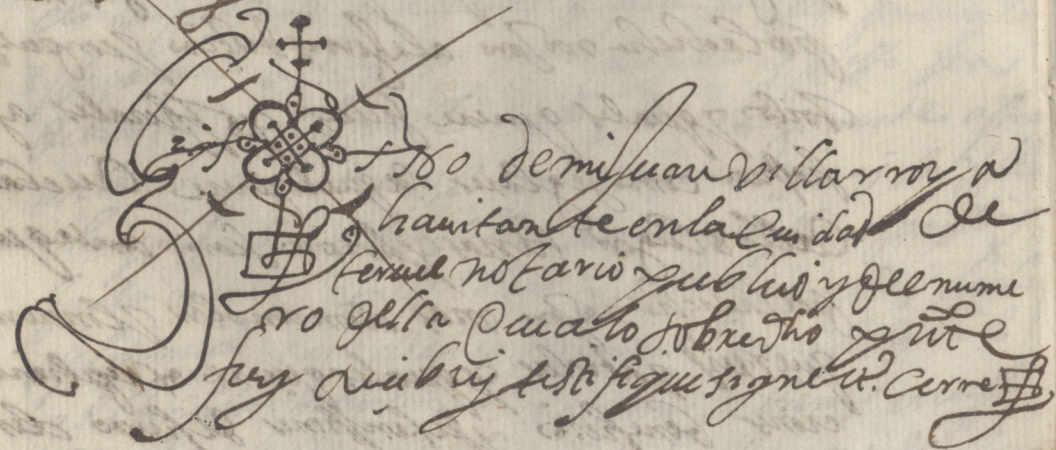 Sig no de mi Juan Villarroya
havitante en la Ciudad de
teruel notario publico y del nume
ro della Qui a lo sobredho pnte
fuy Reciby y testifique signe et. Cerre